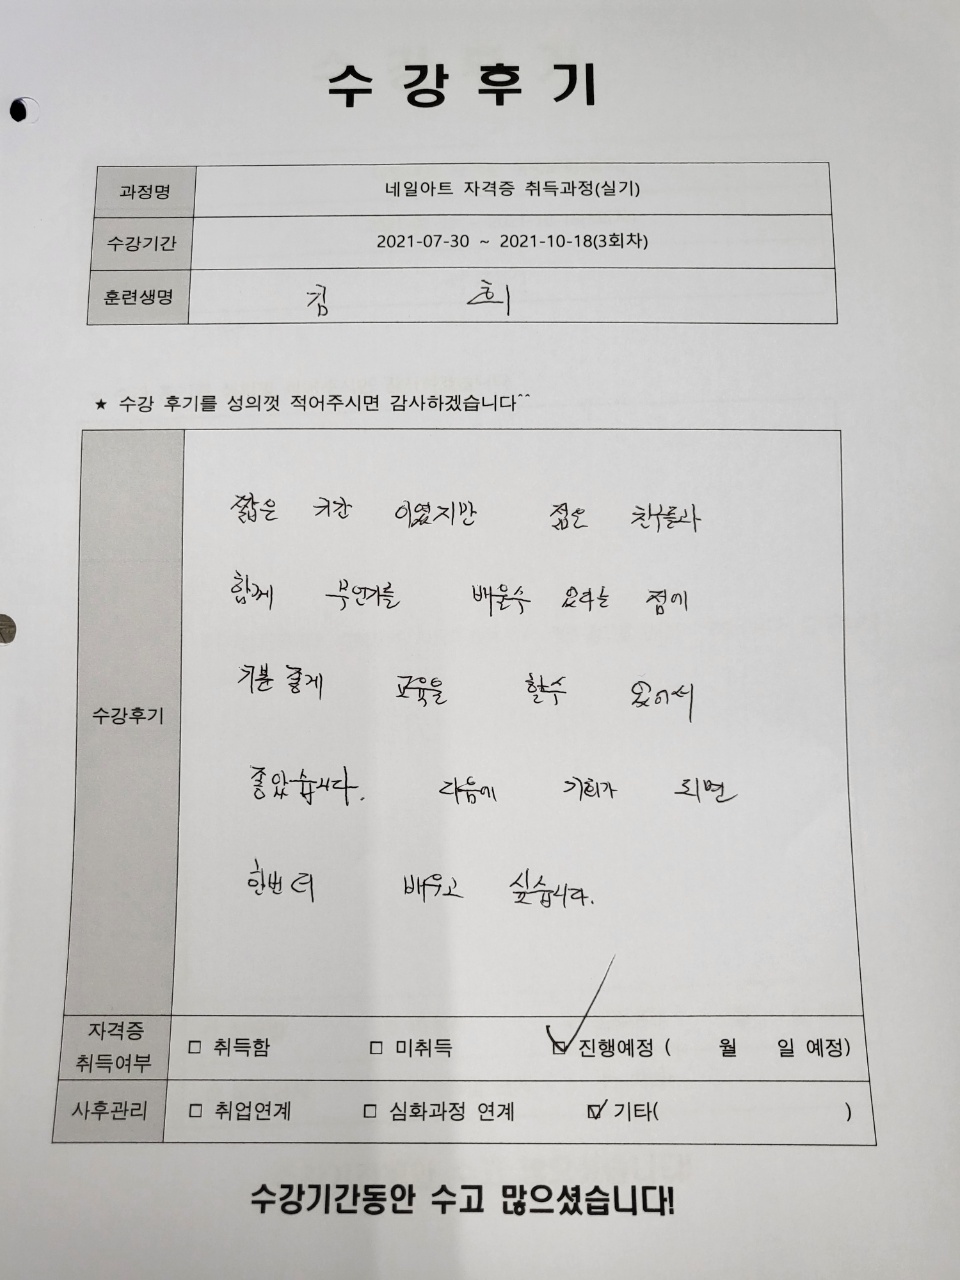 수강후기
과정명 네일아트 자격증 취득과정(실기)
수강기간 2021-07-30 ~ 2021-10-18(3회차)
훈련생명 김 희
★ 수강 후기를 성의껏 적어주시면 감사하겠습니다^^
수강후기
짧은 기간 이였지만 젊은 친구들과
함께 무언가를 배울수 있다는 점에
기분 좋게 교육을 할수 있어서
좋았습니다. 다음에 기회가 되면
한번 더 배우고 싶습니다.
자격증 취득여부 □ 취득함 □ 미취득 ☑ 진행예정 ( 월 일 예정)
사후관리 □ 취업연계 □ 심화과정 연계 ☑ 기타( )
수강기간동안 수고 많으셨습니다!